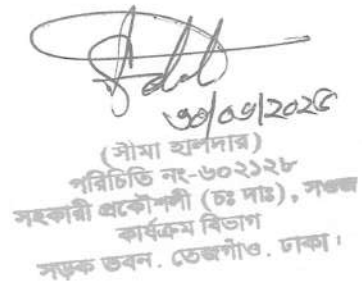 ৩০/০৬/২০২৫
(সীমা হালদার)
পরিচিতি নং-৬০২১২৮
সহকারী প্রকৌশলী (চঃ দাঃ), সওজ
কার্যক্রম বিভাগ
সড়ক ভবন, তেজগাঁও, ঢাকা।